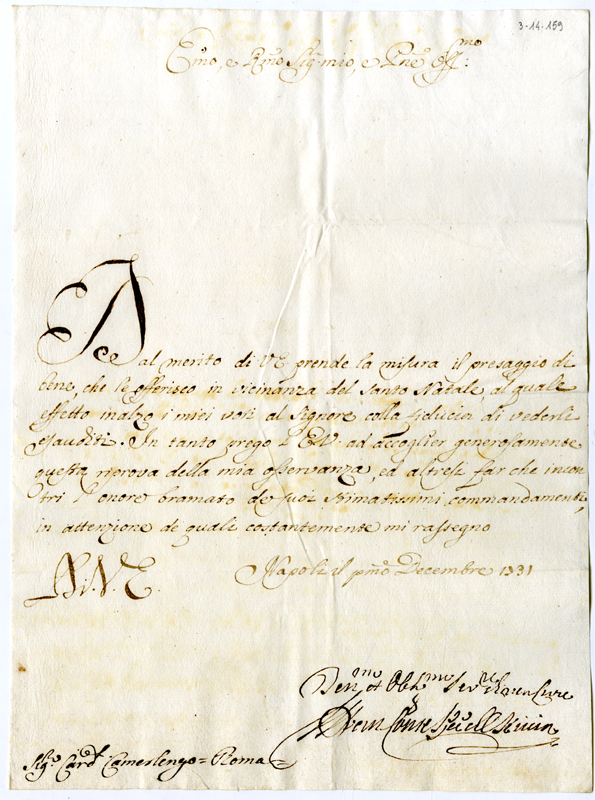 3-14-159
Emo, e Rmo Sig. mio, e Pne Oss.mo
Dal merito di V.E. prende la misura il presaggio di
bene, che le offerisco in vicinanza del Santo Natale, al quale
effetto inalzo i miei voti al Signore colla fiducia di vederli
esauditi. In tanto prego l'E.V. ad accoglier generosamente
questa riprova della mia osservanza, ed altresì far che incon
tri l'onore bramato de suoi stimatissimi commandamenti,
in attenzione de quali costantemente mi rassegno
Di V.E.
Napoli il pmo Decembre 1731
Devmo et Obbmo
Sigr Card Camerlengo = Roma =